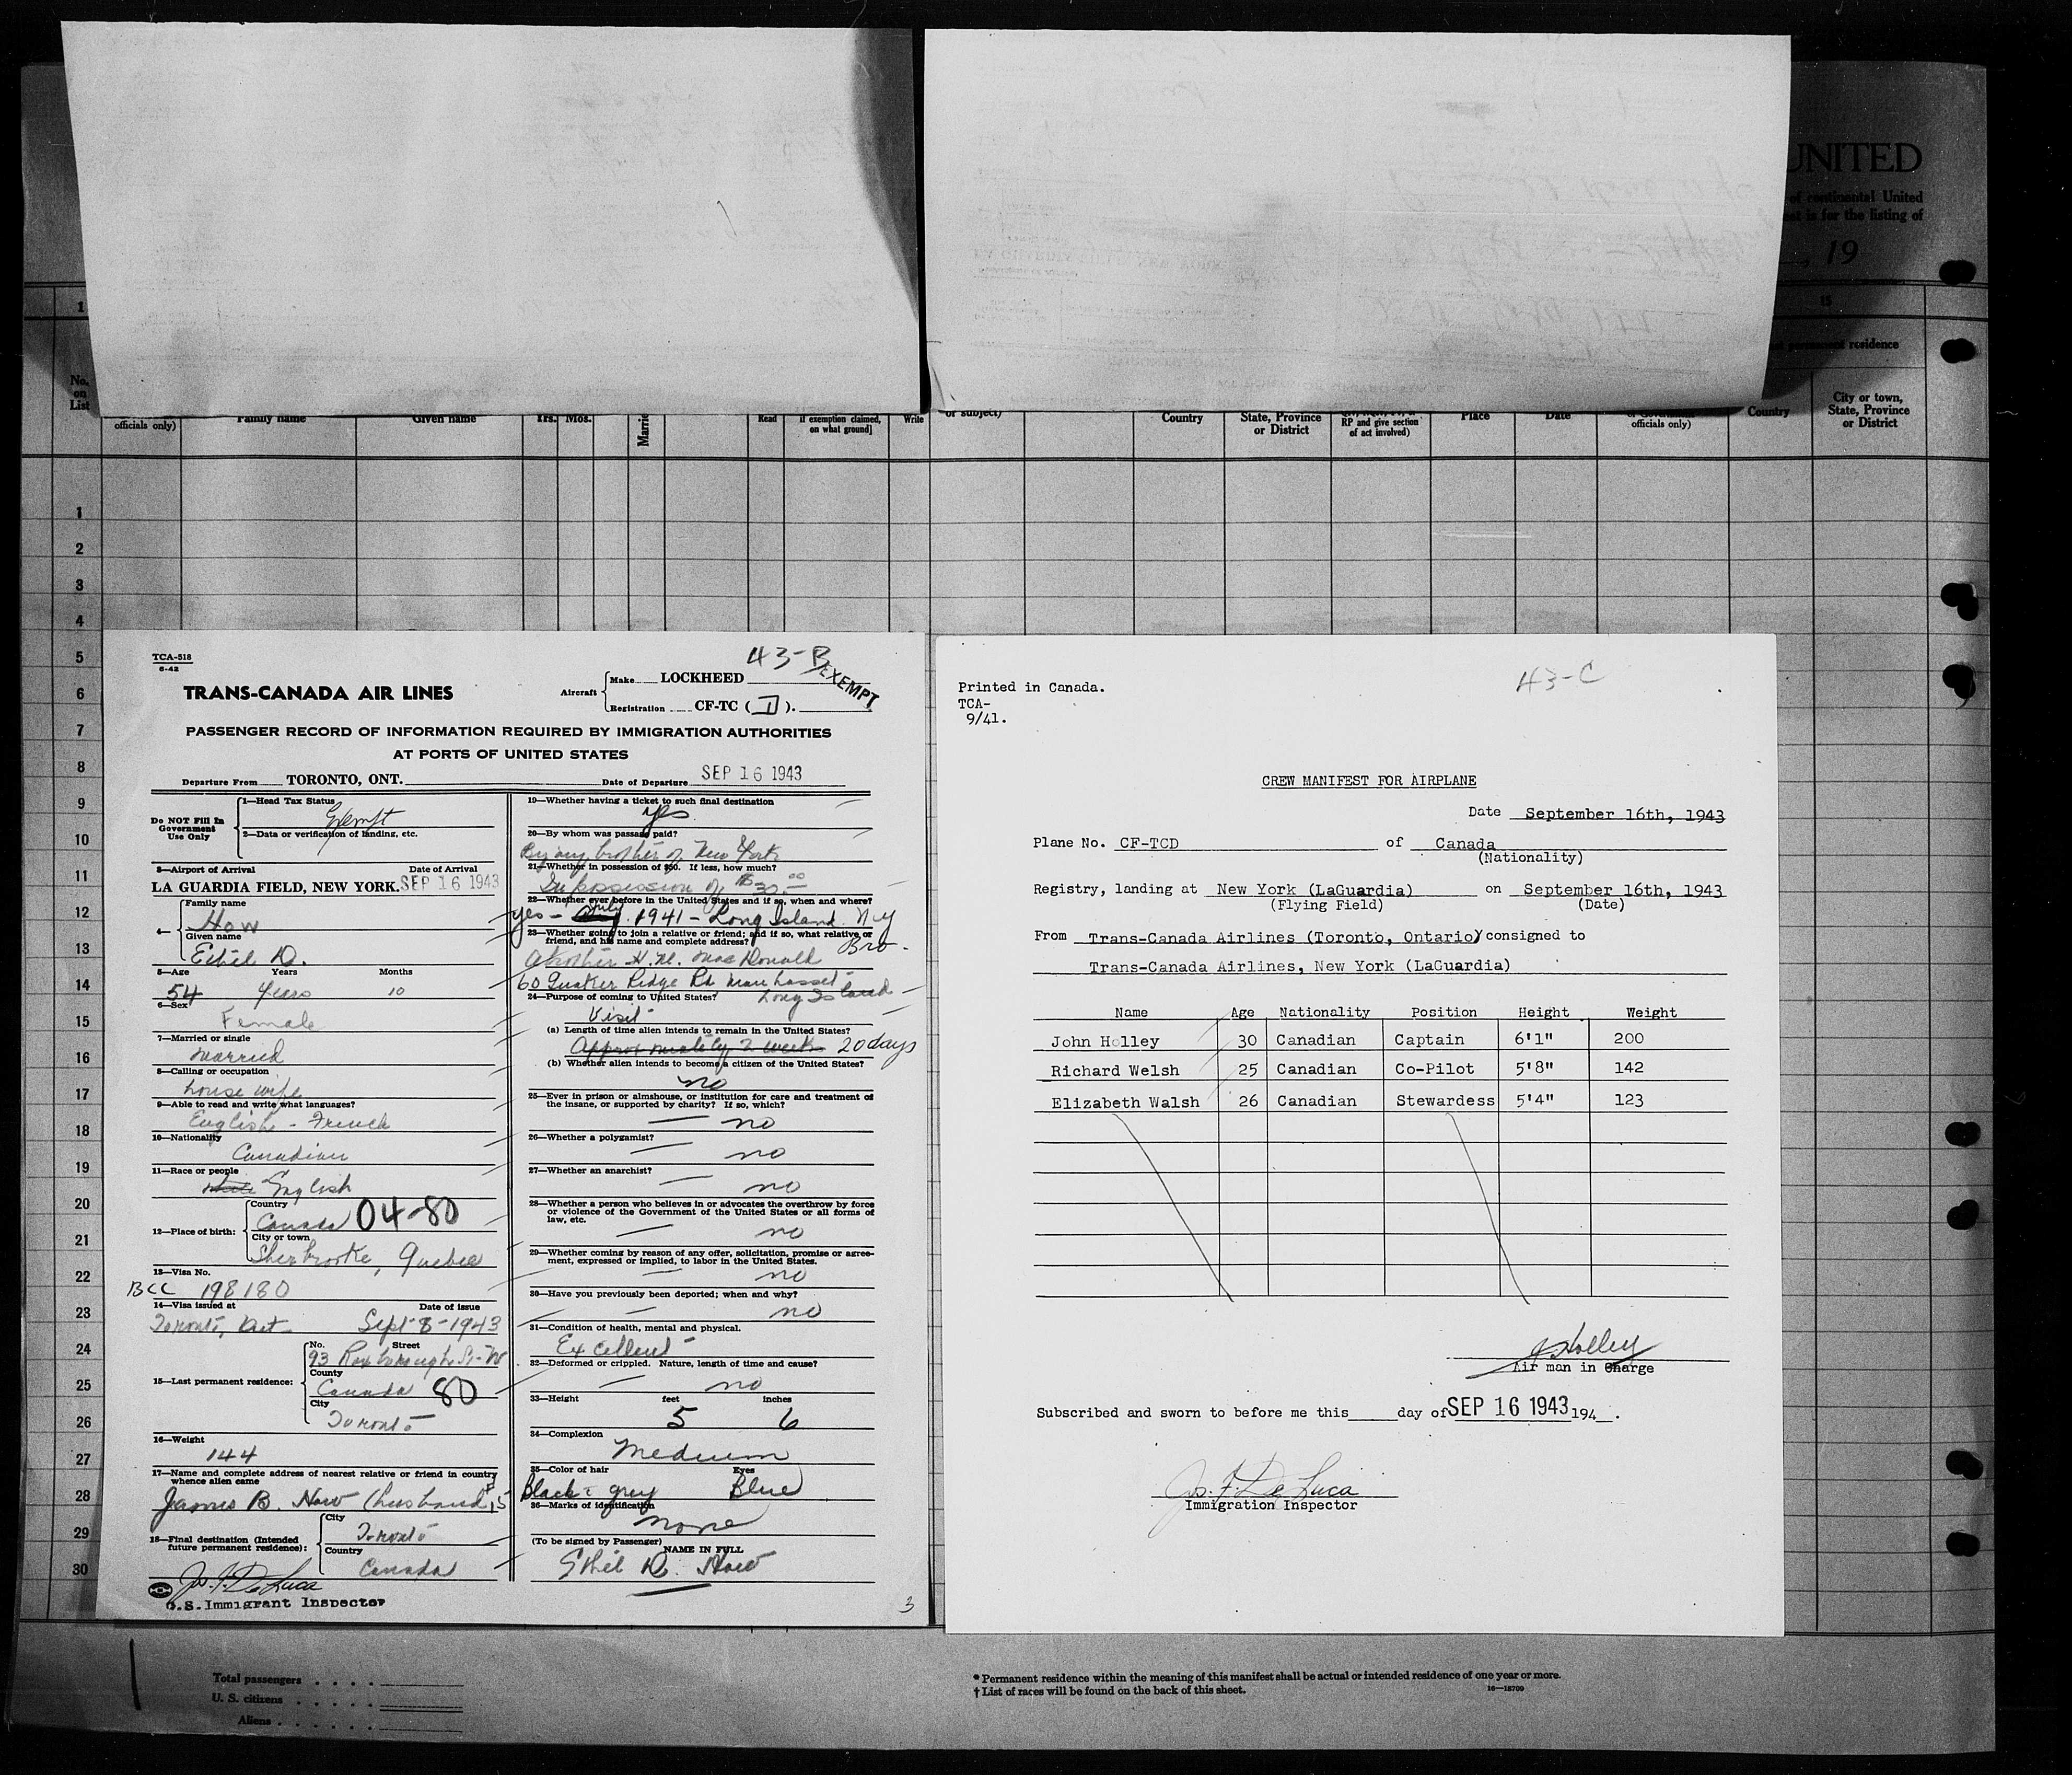 UNITED
of continental United
et is for the listing of
, 19
1
15
permanent residence
No.
on
List
officials only)
Family name
Given name
Yrs.
Mos.
Read
if exemption claimed,
on what ground]
Write
or subject)
Country
State, Province
or District
RP and give section
of act involved)
Place
Date
officials only)
Country
City or town,
State, Province
or District
1
2
3
4
5
6
7
8
9
10
11
12
13
14
15
16
17
18
19
20
21
22
23
24
25
26
27
28
29
30
TCA-518
6-42
43-B
EXEMPT
TRANS-CANADA AIR LINES
Aircraft
Make LOCKHEED
Registration CF-TC (D).
PASSENGER RECORD OF INFORMATION REQUIRED BY IMMIGRATION AUTHORITIES
AT PORTS OF UNITED STATES
Departure From TORONTO, ONT. Date of Departure SEP 16 1943
Do NOT Fill In
Government
Use Only
1—Head Tax Status
Exempt
2—Data or verification of landing, etc.
3—Airport of Arrival Date of Arrival
LA GUARDIA FIELD, NEW YORK. SEP 16 1943
4—
Family name
How
Given name
Ethel D.
5—Age Years Months
54 Years 10
6—Sex
Female
7—Married or single
married
8—Calling or occupation
house wife
9—Able to read and write what languages?
English - French
10—Nationality
Canadian
11—Race or people
white English
12—Place of birth:
Country
Canada 04-80
City or town
Sherbrooke, Quebec
13—Visa No.
BCC 198180
14—Visa issued at Date of issue
Toronto, Ont. Sept-8-1943
15—Last permanent residence:
No. Street
93 Roxborough St-W
County
Canada 80
City
Toronto
16—Weight
144
17—Name and complete address of nearest relative or friend in country
whence alien came
James B. How (husband) 15
18—Final destination (Intended
future permanent residence):
City
Toronto
Country
Canada
Jos. F. De Luca
U.S. Immigrant Inspector
19—Whether having a ticket to such final destination
yes
20—By whom was passage paid?
By my brother of New York
21—Whether in possession of $50. If less, how much?
In possession of $30.00
22—Whether ever before in the United States and if so, when and where?
yes - July 1941 - Long Island N.Y
23—Whether going to join a relative or friend; and if so, what relative or
friend, and his name and complete address?
Bro.
Brother H.M. MacDonald
60 Quaker Ridge Rd Manhasset
Long Island
24—Purpose of coming to United States?
Visit
(a) Length of time alien intends to remain in the United States?
Approximately 2 weeks 20 days
(b) Whether alien intends to become a citizen of the United States?
no
25—Ever in prison or almshouse, or institution for care and treatment of
the insane, or supported by charity? If so, which?
— no
26—Whether a polygamist?
— no
27—Whether an anarchist?
— no
28—Whether a person who believes in or advocates the overthrow by force
or violence of the Government of the United States or all forms of
law, etc.
— no
29—Whether coming by reason of any offer, solicitation, promise or agree-
ment, expressed or implied, to labor in the United States.
— no
30—Have you previously been deported; when and why?
— no
31—Condition of health, mental and physical.
Excellent
32—Deformed or crippled. Nature, length of time and cause?
— no
33—Height feet inches
5 6
34—Complexion
Medium
35—Color of hair Eyes
Black & grey Blue
36—Marks of identification
none
(To be signed by Passenger) NAME IN FULL
Ethel D. How
3
43-C
Printed in Canada.
TCA-
9/41.
CREW MANIFEST FOR AIRPLANE
Date September 16th, 1943
Plane No. CF-TCD of Canada
(Nationality)
Registry, landing at New York (LaGuardia) on September 16th, 1943
(Flying Field) (Date)
From Trans-Canada Airlines (Toronto, Ontario) consigned to
Trans-Canada Airlines, New York (LaGuardia)
Name Age Nationality Position Height Weight
John Holley 30 Canadian Captain 6'1" 200
Richard Welsh 25 Canadian Co-Pilot 5'8" 142
Elizabeth Walsh 26 Canadian Stewardess 5'4" 123
J Holley
Air man in Charge
Subscribed and sworn to before me this day of SEP 16 1943 194 .
Jos. F. De Luca
Immigration Inspector
Total passengers . . . .
U. S. citizens . . . . .
Aliens . . . . . .
* Permanent residence within the meaning of this manifest shall be actual or intended residence of one year or more.
† List of races will be found on the back of this sheet.
16—18709